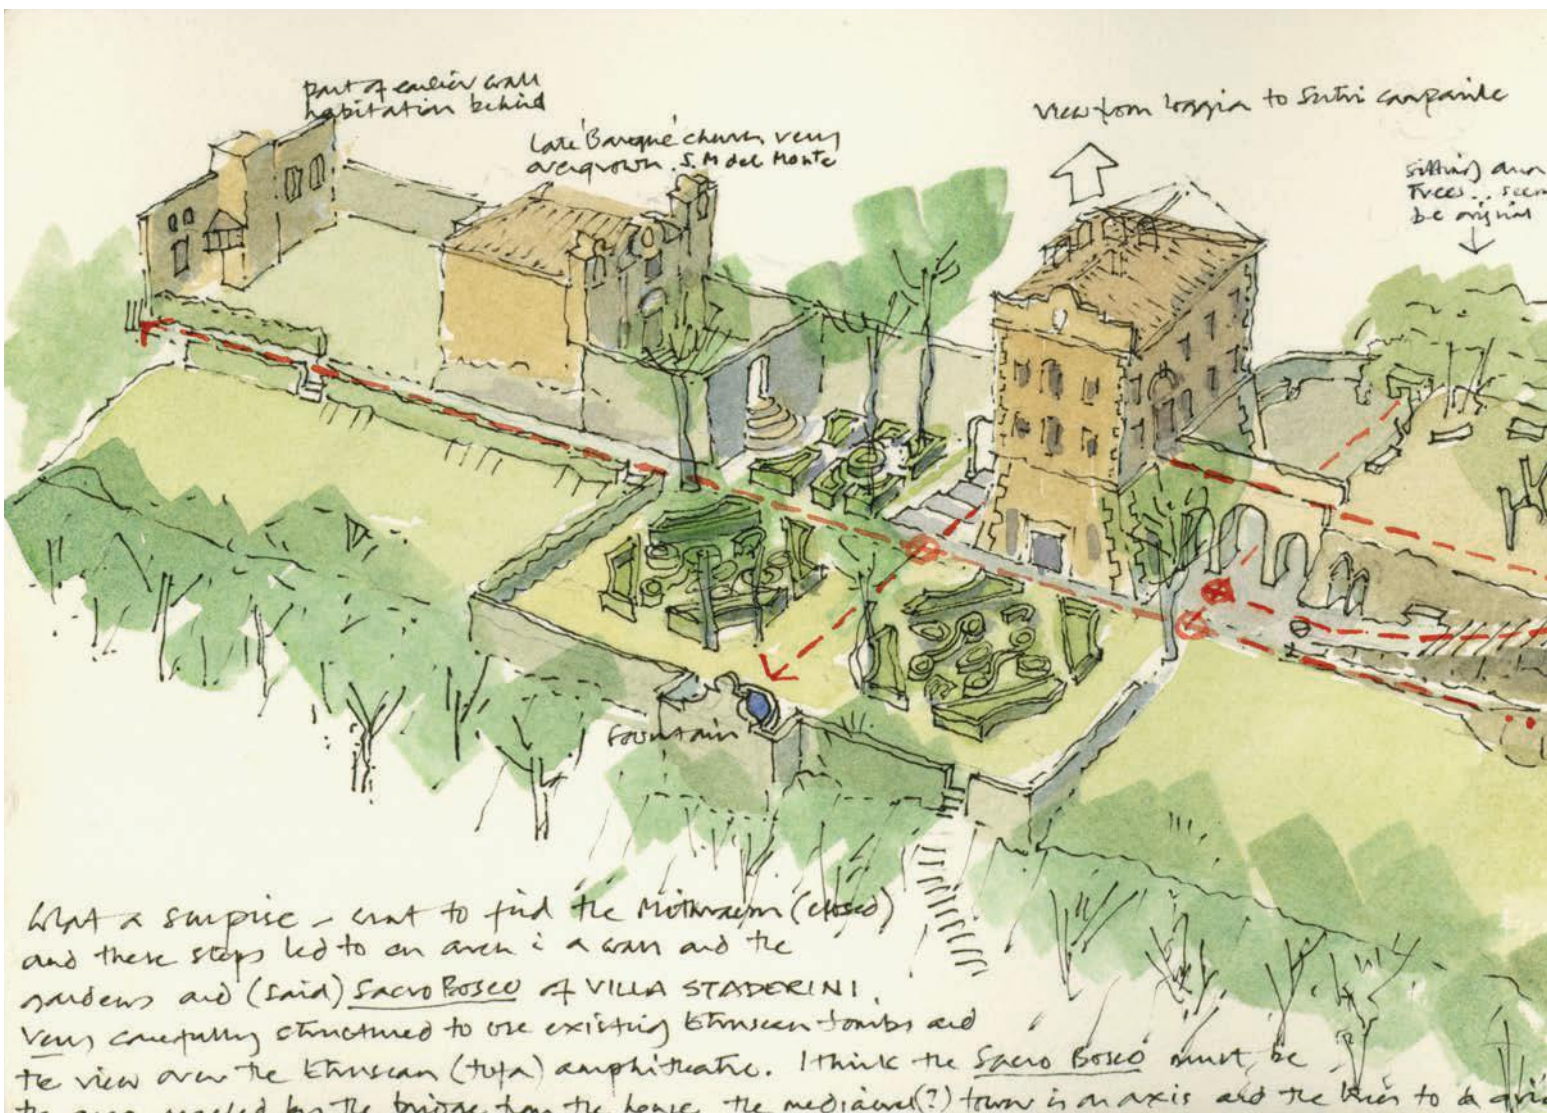 part of earlier wall
habitation behind
Late 'Baroque' church very
overgrown. S. M del Monte
View from loggia to Sutri campanile
sitting
Trees... seem
be original
fountain
What a surprise – went to find the Mithraeum (closed)
and these steps led to an arch i a wall and the
gardens and (said) Sacro Bosco of VILLA STADERINI.
Very carefully structured to use existing Etruscan tombs and
the view over the Etruscan (tufa) amphitheatre. I think the Sacro Bosco must be
the area reached by the bridge from the house, the mediaeval(?) town is on axis and the to be